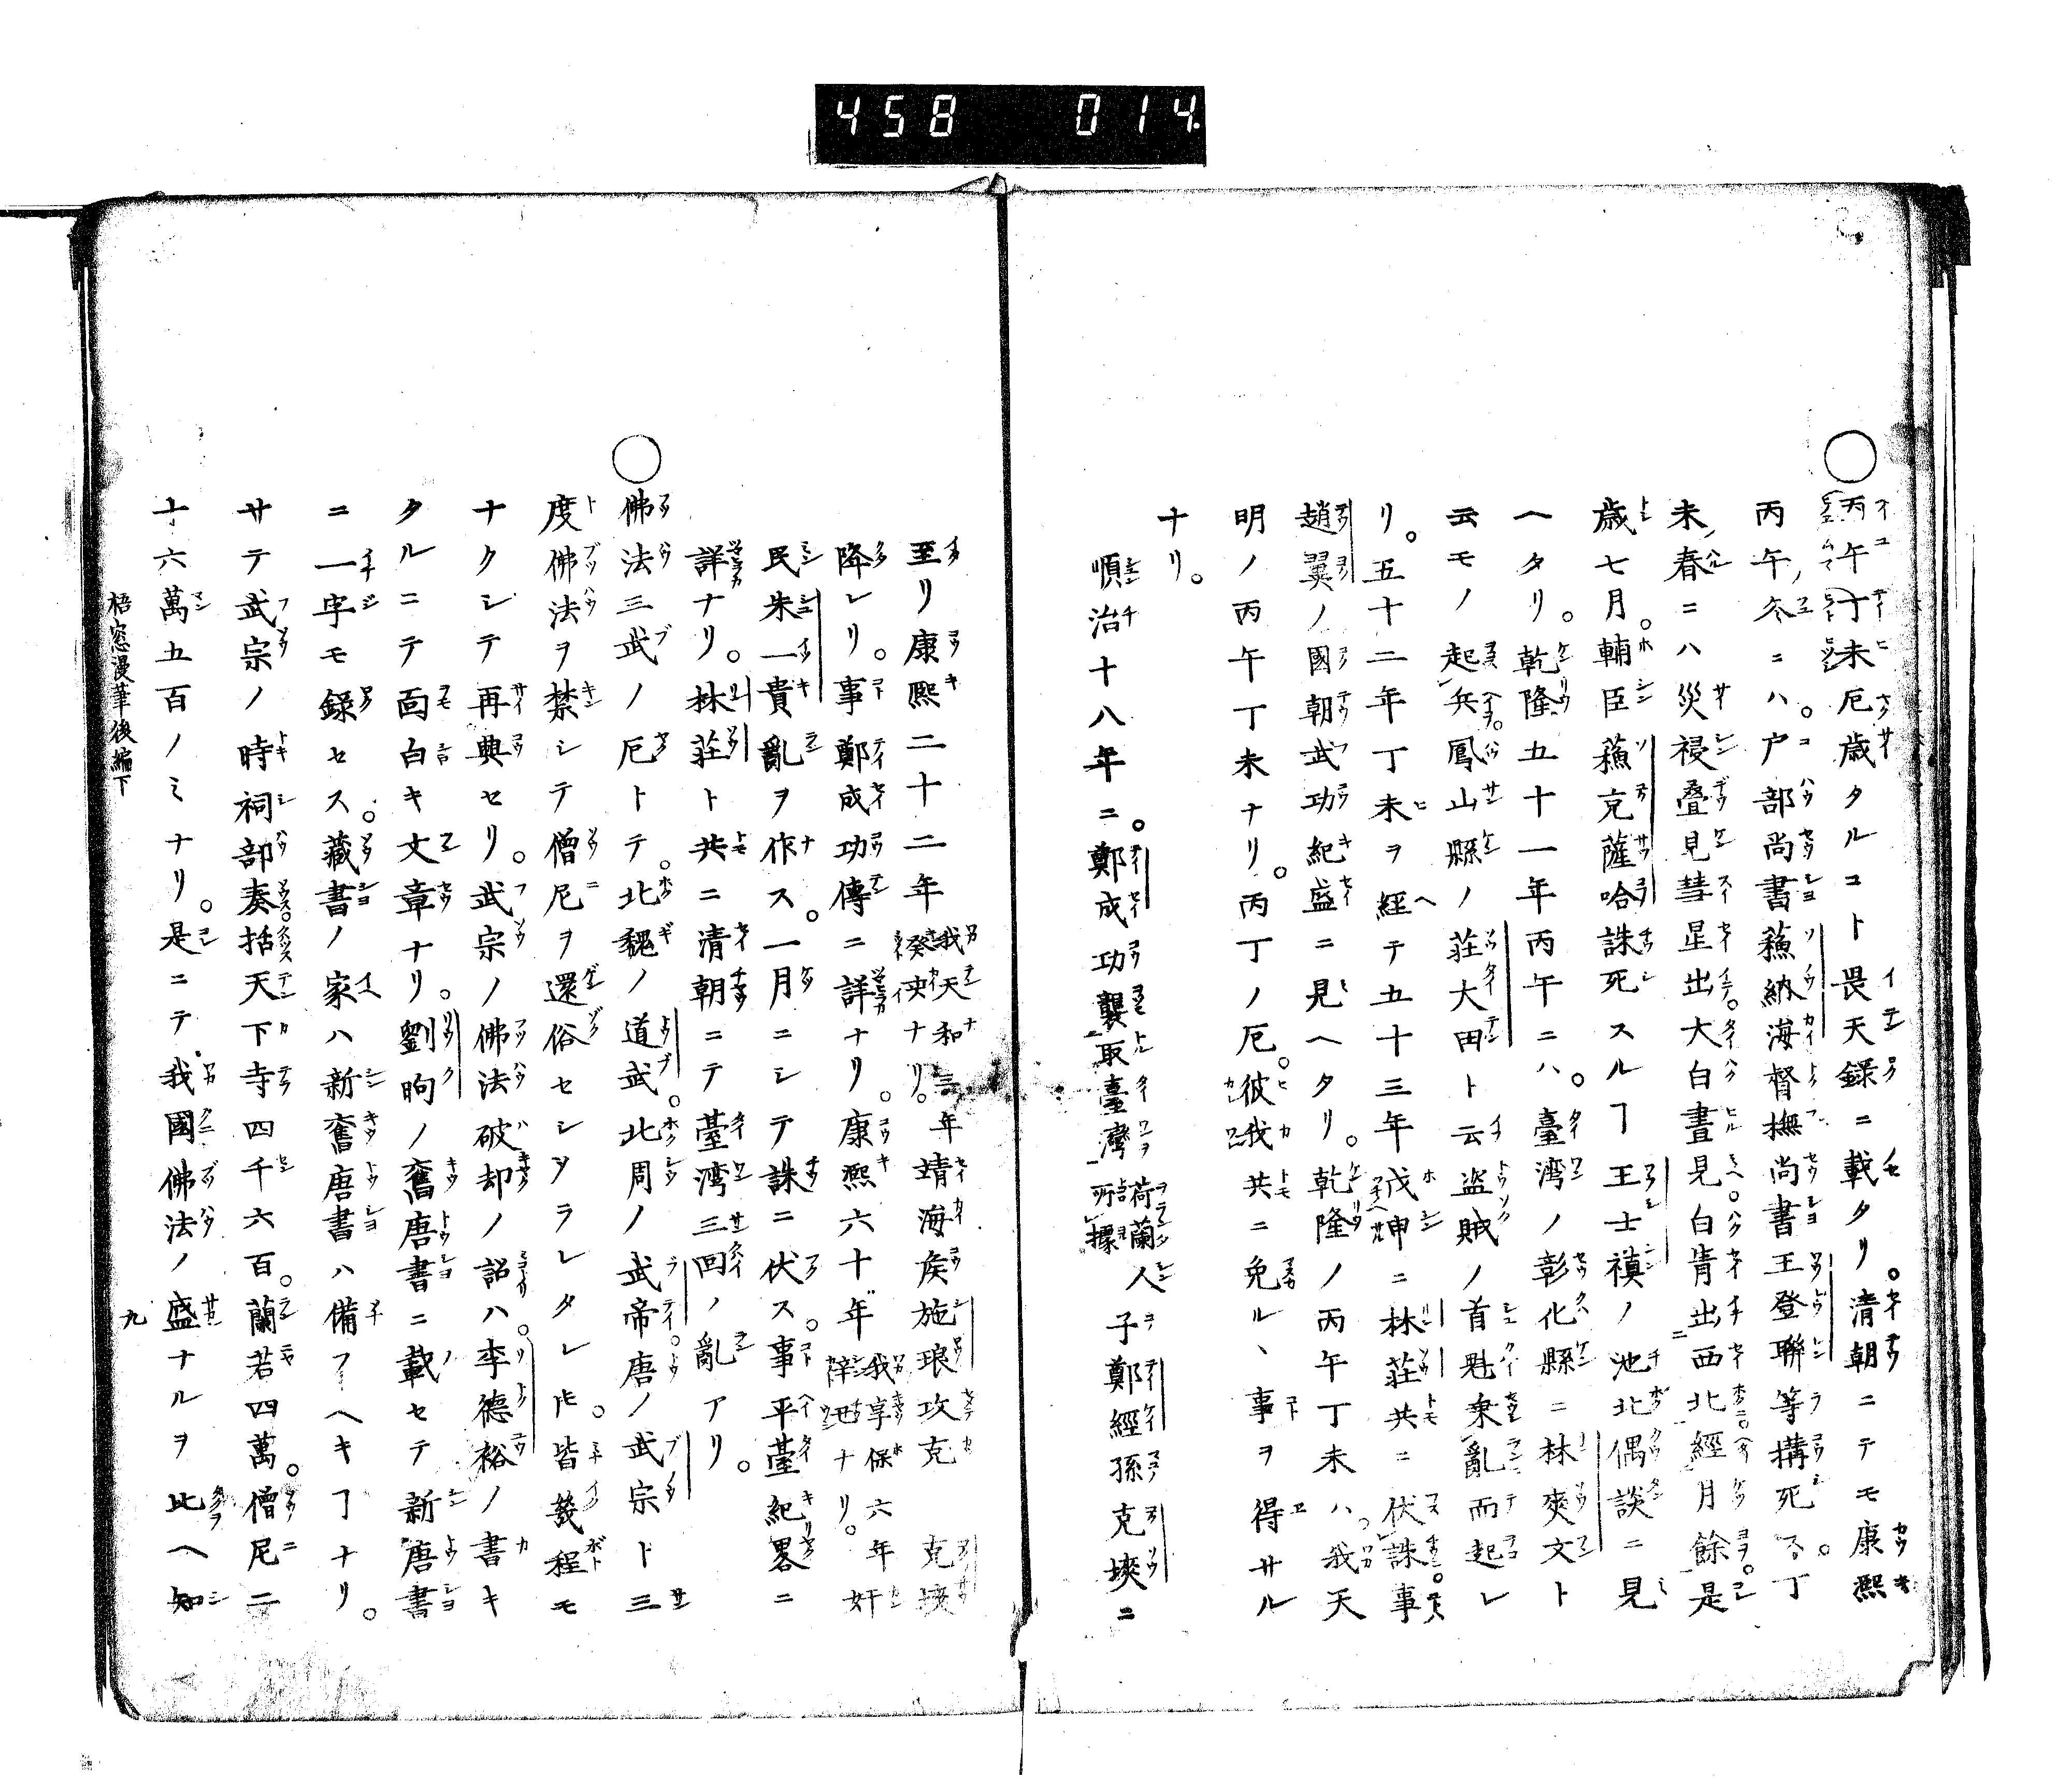 458 014
○丙午丁未厄歳タルコト畏天録ニ載タリ。清朝ニテモ康熙
丙午ノ冬ニハ。戸部尚書蘓納海督撫尚書王登聯等搆死ス。丁
未ノ春ニハ災祲疊見彗星出。大白晝見。白眚出西北。經月餘。是
歳七月。輔臣蘓克薩哈誅死スルヿ王士禛ノ池北偶談ニ見
ヘタリ。乾隆五十一年丙午ニハ。臺湾ノ彰化縣ニ林爽文ト
云モノ起兵。鳳山縣ノ莊大田ト云盗賊ノ首魁乗亂而起レ
リ。五十二年丁未ヲ經テ五十三年戊申ニ林莊共ニ伏誅。事
趙翼ノ國朝武功紀盛ニ見ヘタリ。乾隆ノ丙午丁未ハ我天
明ノ丙午丁未ナリ。丙丁ノ厄。彼我共ニ免ルヽ事ヲ得サル
ナリ。
順治十八年ニ。鄭成功襲取臺灣荷蘭人所據子鄭經孫克塽ニ
至リ康熙二十二年我天和三年癸亥ナリ。靖海矦施琅攻克克塽
降レリ。事鄭成功傳ニ詳ナリ。康熙六十年我享保六年辛丑ナリ。奸
民朱一貴亂ヲ作ス。一月ニシテ誅ニ伏ス。事平臺紀畧ニ
詳ナリ。林莊ト共ニ清朝ニテ臺湾三回ノ亂アリ。
○佛法三武ノ厄トテ。北魏ノ道武。北周ノ武帝。唐ノ武宗ト三
度佛法ヲ禁シテ僧尼ヲ還俗セシメラレタレ𪜈。皆幾程モ
ナクシテ再興セリ。武宗ノ佛法破却ノ詔ハ。李德裕ノ書キ
タルニテ面白キ文章ナリ。劉昫ノ舊唐書ニ載セテ新唐書
ニ一字モ録セス。藏書ノ家ハ新舊唐書ハ備フヘキヿナリ。
サテ武宗ノ時祠部奏。括天下寺四千六百。蘭若四萬。僧尼二
十六萬五百ノミナリ。是ニテ我國佛法ノ盛ナルヲ比ヘ知
梧窓漫筆後編下 九